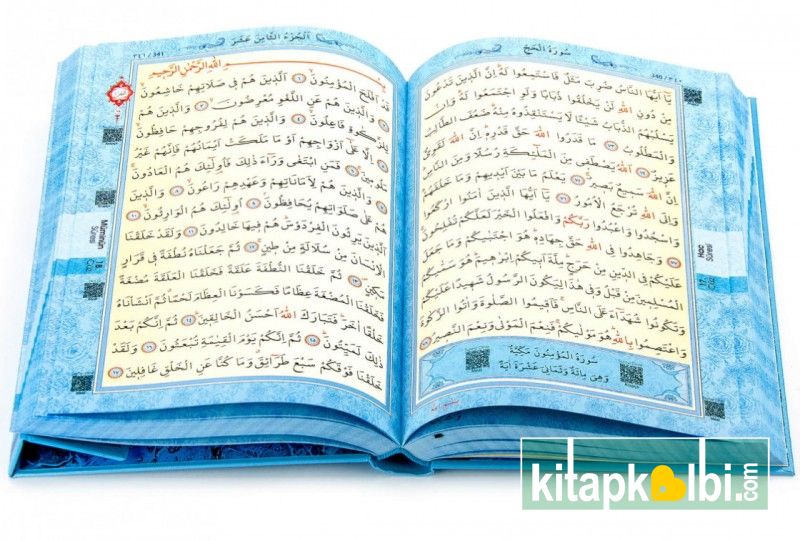 سُورَةُ الْحَجِّ
٣٤٠ / 340
يَا اَيُّهَا النَّاسُ ضُرِبَ مَثَلٌ فَاسْتَمِعُوا لَهُ اِنَّ الَّذِينَ تَدْعُونَ
مِنْ دُونِ اللّٰهِ لَنْ يَخْلُقُوا ذُبَابًا وَلَوِ اجْتَمَعُوا لَهُ وَاِنْ
يَسْلُبْهُمُ الذُّبَابُ شَيْئًا لَا يَسْتَنْقِذُوهُ مِنْهُ ضَعُفَ الطَّالِبُ
وَالْمَطْلُوبُ ٧٣ مَا قَدَرُوا اللّٰهَ حَقَّ قَدْرِهِ اِنَّ اللّٰهَ لَقَوِيٌّ
عَزِيزٌ ٧٤ اَللّٰهُ يَصْطَفِي مِنَ الْمَلٰئِكَةِ رُسُلًا وَمِنَ النَّاسِ
اِنَّ اللّٰهَ سَمِيعٌ بَصِيرٌ ٧٥ يَعْلَمُ مَا بَيْنَ اَيْدِيهِمْ وَمَا خَلْفَهُمْ
وَاِلَى اللّٰهِ تُرْجَعُ الْاُمُورُ ٧٦ يَا اَيُّهَا الَّذِينَ اٰمَنُوا ارْكَعُوا
وَاسْجُدُوا وَاعْبُدُوا رَبَّكُمْ وَافْعَلُوا الْخَيْرَ لَعَلَّكُمْ تُفْلِحُونَ
٧٧ وَجَاهِدُوا فِي اللّٰهِ حَقَّ جِهَادِهِ هُوَ اجْتَبٰيكُمْ وَمَا جَعَلَ
عَلَيْكُمْ فِي الدِّينِ مِنْ حَرَجٍ مِلَّةَ اَبِيكُمْ اِبْرٰهِيمَ هُوَ سَمّٰيكُمُ
الْمُسْلِمِينَ مِنْ قَبْلُ وَفِي هٰذَا لِيَكُونَ الرَّسُولُ شَهِيدًا عَلَيْكُمْ
وَتَكُونُوا شُهَدَاءَ عَلَى النَّاسِ فَاَقِيمُوا الصَّلٰوةَ وَاٰتُوا الزَّكٰوةَ
وَاعْتَصِمُوا بِاللّٰهِ هُوَ مَوْلٰيكُمْ فَنِعْمَ الْمَوْلٰى وَنِعْمَ النَّصِيرُ ٧٨
سُورَةُ الْمُؤْمِنُونَ مَكِّيَّةٌ
وَهِيَ مِائَةٌ وَثَمَانِي عَشَرَةَ اٰيَةً
Hac
Suresi
17. Cüz
اَلْجُزْءُ الثَّامِنَ عَشَرَ
٣٤١ / 341
بِسْمِ اللّٰهِ الرَّحْمٰنِ الرَّحِيمِ
قَدْ اَفْلَحَ الْمُؤْمِنُونَ ١ اَلَّذِينَ هُمْ فِي صَلَاتِهِمْ خَاشِعُونَ
٢ وَالَّذِينَ هُمْ عَنِ اللَّغْوِ مُعْرِضُونَ ٣ وَالَّذِينَ هُمْ
لِلزَّكٰوةِ فَاعِلُونَ ٤ وَالَّذِينَ هُمْ لِفُرُوجِهِمْ حَافِظُونَ
٥ اِلَّا عَلٰى اَزْوَاجِهِمْ اَوْ مَا مَلَكَتْ اَيْمَانُهُمْ فَاِنَّهُمْ غَيْرُ
مَلُومِينَ ٦ فَمَنِ ابْتَغٰى وَرَاءَ ذٰلِكَ فَاُولٰئِكَ هُمُ الْعَادُونَ
٧ وَالَّذِينَ هُمْ لِاَمَانَاتِهِمْ وَعَهْدِهِمْ رَاعُونَ ٨ وَالَّذِينَ
هُمْ عَلٰى صَلَوَاتِهِمْ يُحَافِظُونَ ٩ اُولٰئِكَ هُمُ الْوَارِثُونَ ١٠
اَلَّذِينَ يَرِثُونَ الْفِرْدَوْسَ هُمْ فِيهَا خَالِدُونَ ١١ وَلَقَدْ خَلَقْنَا
الْاِنْسَانَ مِنْ سُلَالَةٍ مِنْ طِينٍ ١٢ ثُمَّ جَعَلْنَاهُ نُطْفَةً فِي قَرَارٍ
مَكِينٍ ١٣ ثُمَّ خَلَقْنَا النُّطْفَةَ عَلَقَةً فَخَلَقْنَا الْعَلَقَةَ مُضْغَةً
فَخَلَقْنَا الْمُضْغَةَ عِظَامًا فَكَسَوْنَا الْعِظَامَ لَحْمًا ثُمَّ اَنْشَأْنَاهُ
خَلْقًا اٰخَرَ فَتَبَارَكَ اللّٰهُ اَحْسَنُ الْخَالِقِينَ ١٤ ثُمَّ اِنَّكُمْ بَعْدَ
ذٰلِكَ لَمَيِّتُونَ ١٥ ثُمَّ اِنَّكُمْ يَوْمَ الْقِيٰمَةِ تُبْعَثُونَ ١٦ وَلَقَدْ
خَلَقْنَا فَوْقَكُمْ سَبْعَ طَرَائِقَ وَمَا كُنَّا عَنِ الْخَلْقِ غَافِلِينَ ١٧
Mü'minun
Suresi
18. Cüz
kitapkalbi.com